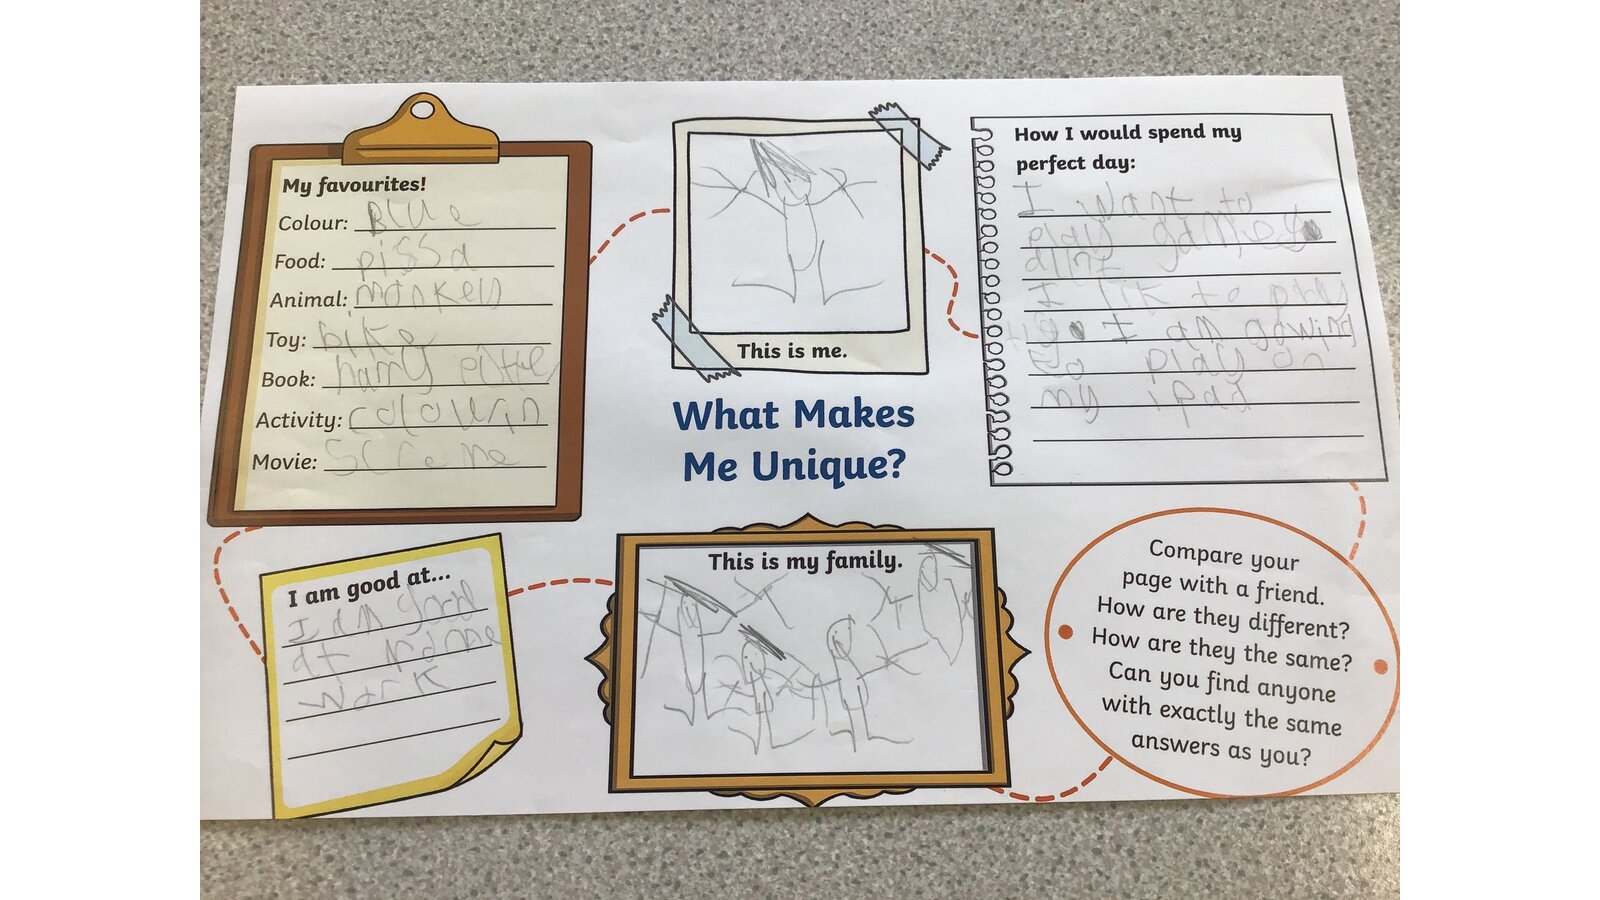 My favourites!
Colour: Blue
Food: pissa
Animal: monkey
Toy: bike
Book: harry potte
Activity: colourin
Movie:
This is me.
What Makes
Me Unique?
How I would spend my
perfect day:
I
play
I lik to play
I am gowing
to play on
my ipad
I am good at...
I am good
at
work
This is my family.
Compare your
page with a friend.
How are they different?
How are they the same?
Can you find anyone
with exactly the same
answers as you?